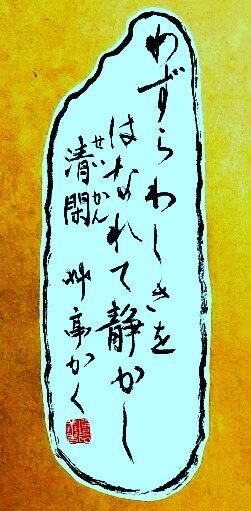 わずらわしきを
はなれて静かし
せいかん
清閑 艸亭かく